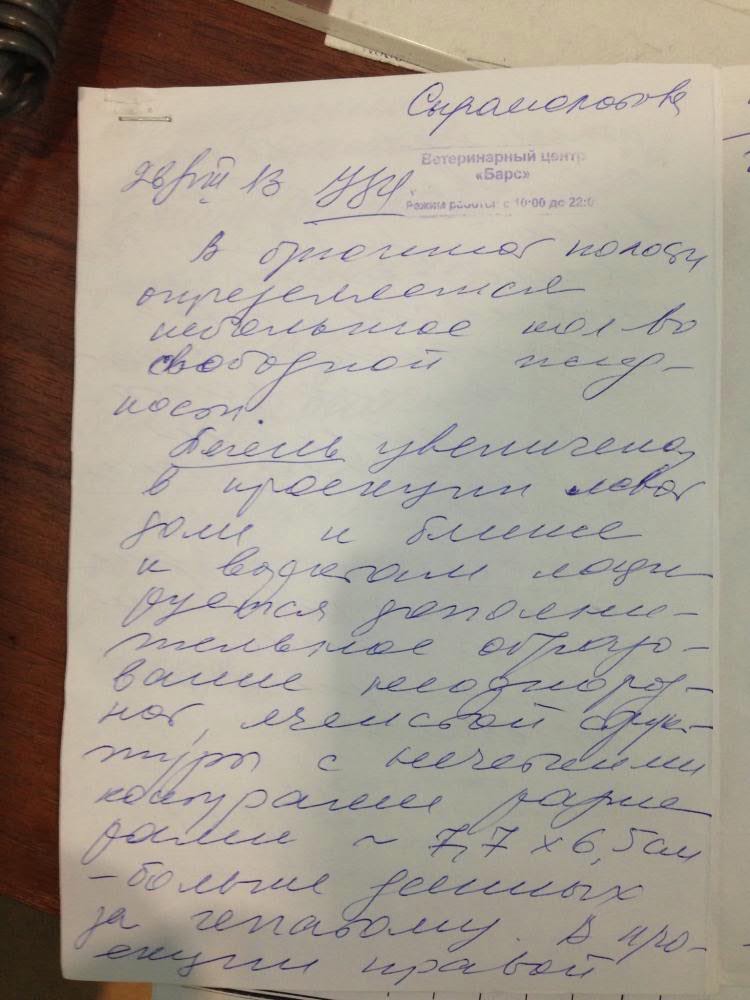 Сырамолотова
Ветеринарный центр
«Барс»
Режим работы: с 10:00 до 22:0
13 УЗИ
В брюшной полости
определяется
небольшое кол во
свободной жид-
кости.
Печень увеличена,
в проекции левой
доли и ближе
к воротам лоци
руется дополни-
тельное образо-
вание неоднород-
ной, ячеистой струк-
туры с нечеткими
контурами разме
рами ~ 7,7 х 6,5 см
- больше данных
за гепатому. В про-
екции правой